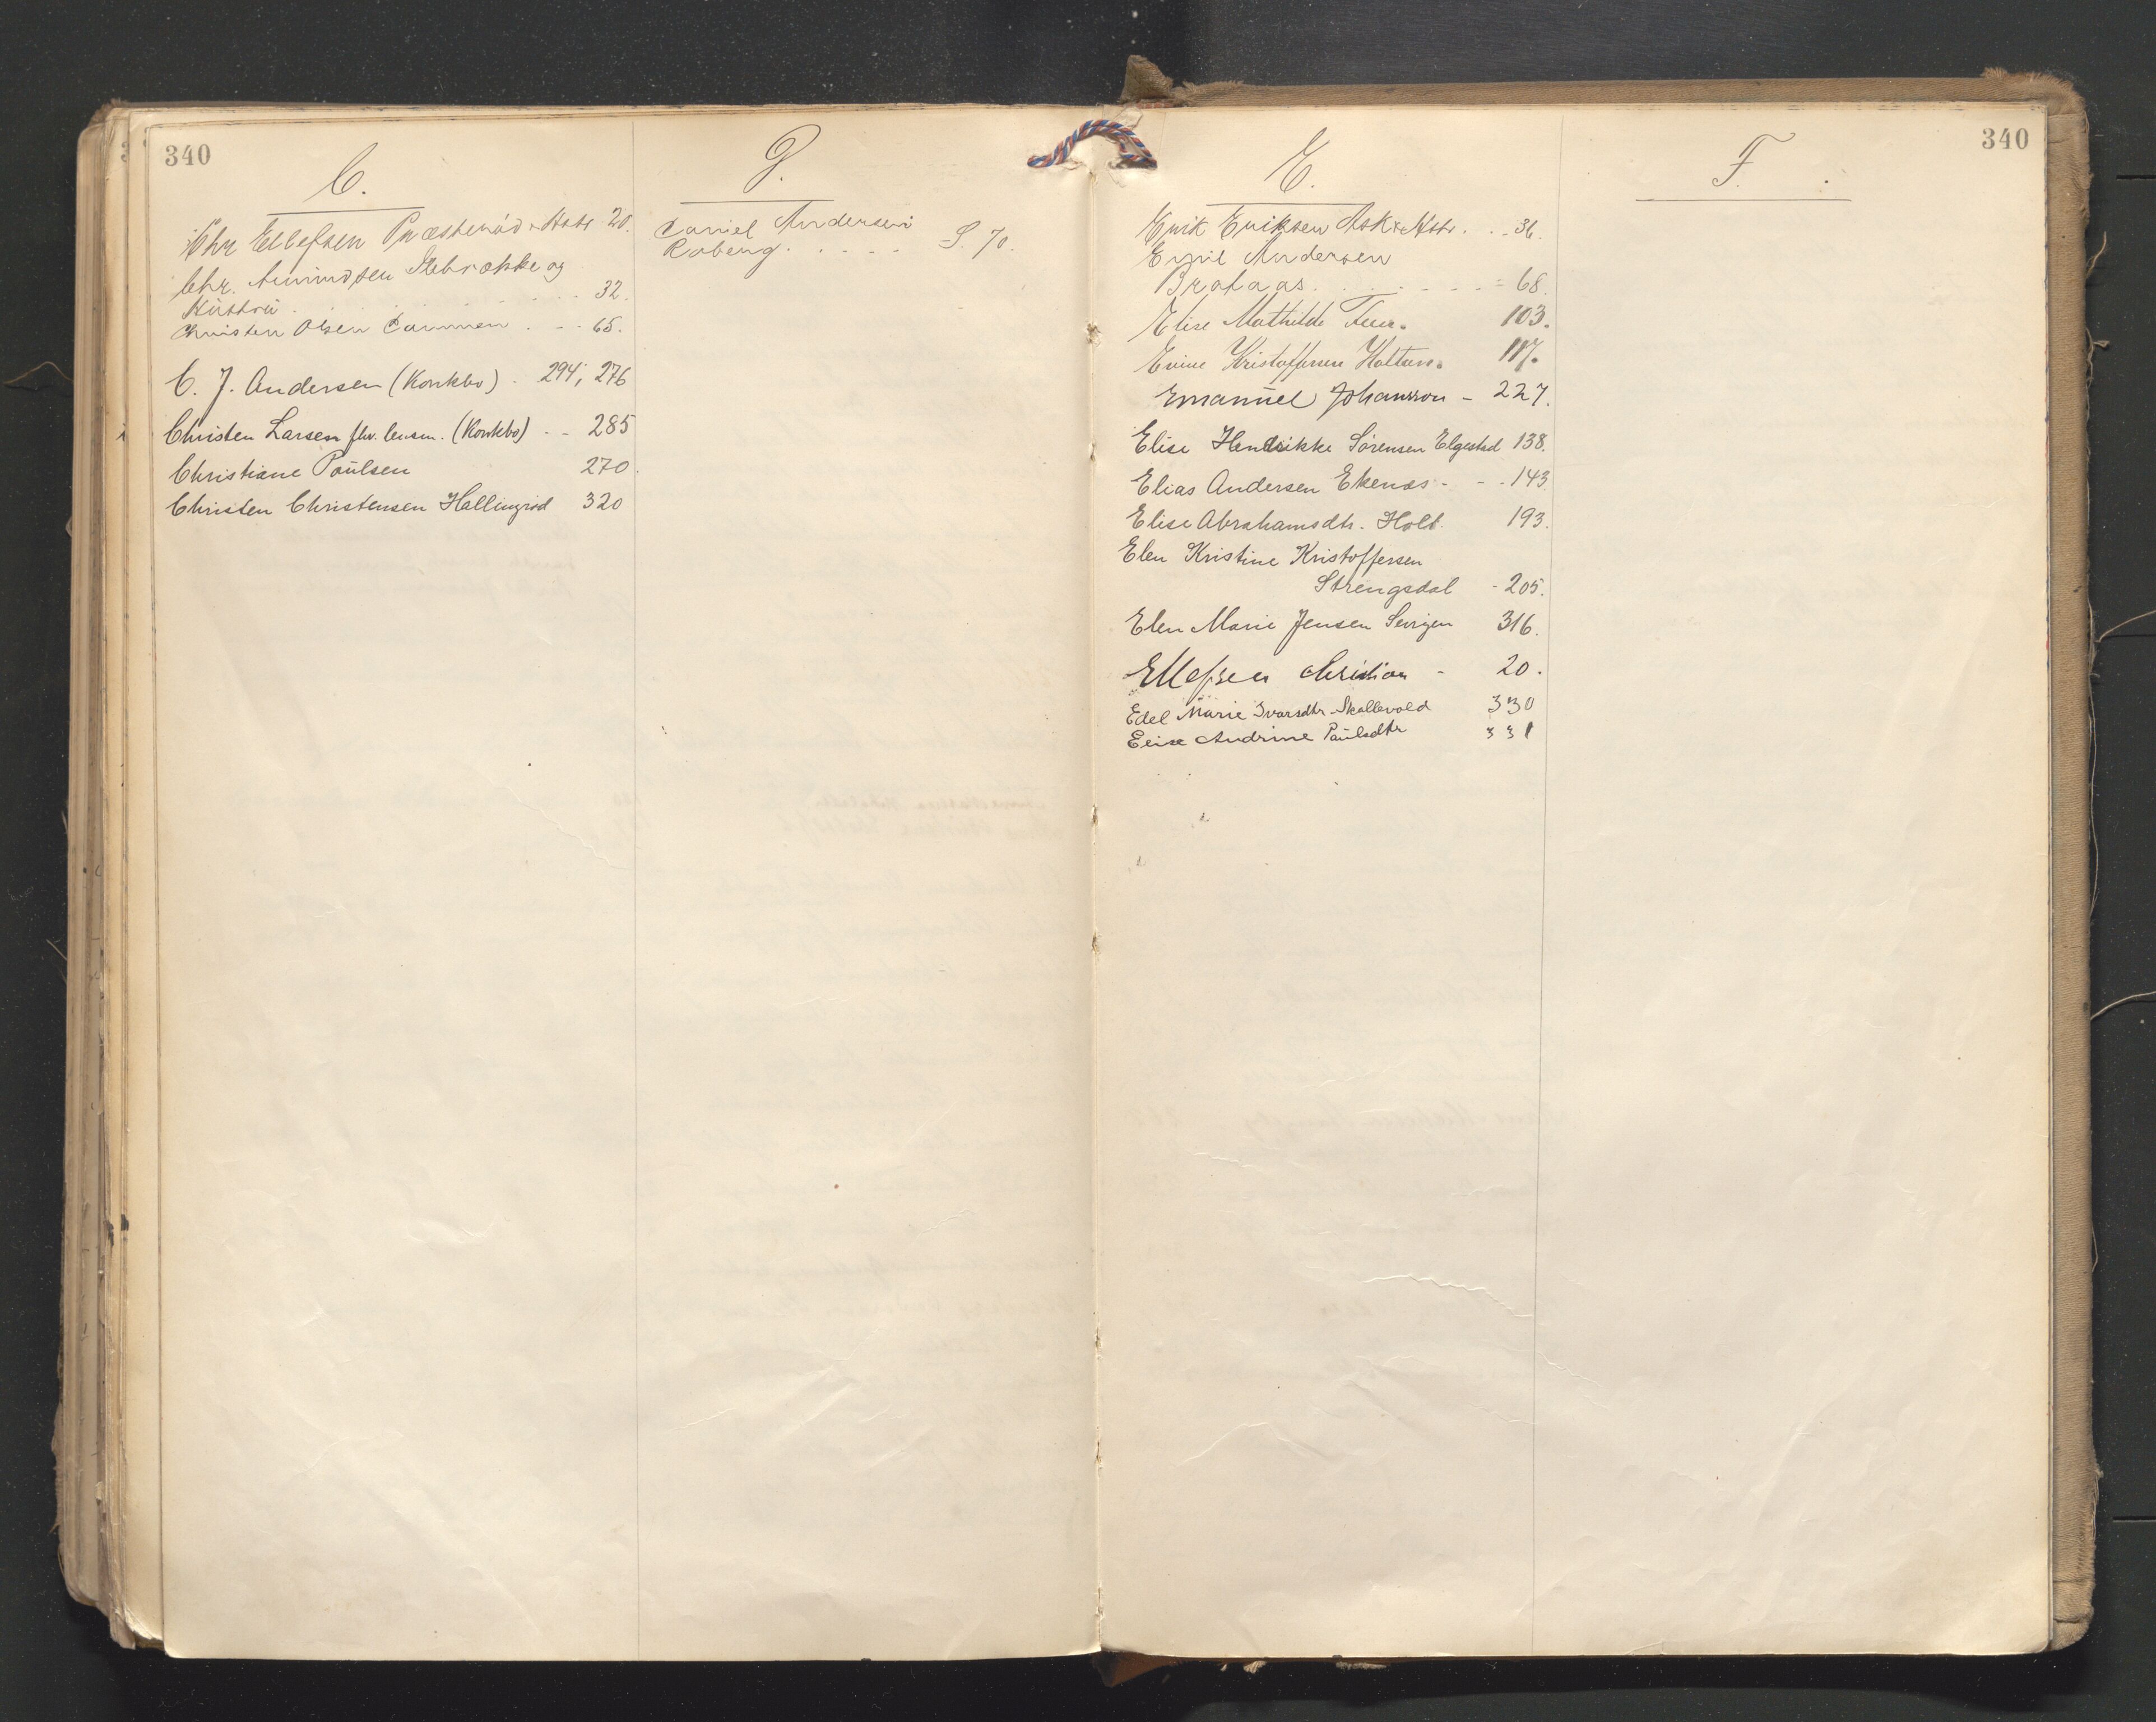 340
C.
Chr Ellefsen Præsterød + Hstr 20.
Chr. Amundsen Slebrokke og
32.
Christen Olsen Dammen . - . 65.
C. J. Andersen (Konkbo) . 294, 276
Christen Larsen fhv. lensm. (Konkbo) . - 285
Christiane Paulsen 270.
Christen Christensen Hallingrød 320
D.
Daniel Andersen
Roberg . . - - - S. 70.
340
E.
Erik Eriksen Ask & Hstr . . - 36.
Emil Andersen
Brataas . . . . - - - 68.
Elise Mathilde 103.
Kristoffersen 117.
Emanuel Johansson - 227.
Elise Hendrikke Sørensen Elgestad 138.
Elias Andersen Ekenæs - - - 143.
Elise Abrahamsdtr. Holt. 193.
Elen Kristine Kristoffersen
Strengsdal - 205.
Elen Marie Jensen 316.
Ellefsen Christian - 20.
Edel Marie Ivarsdtr. Skallevold 330
Elise Andrine Paulsdtr 331
F.